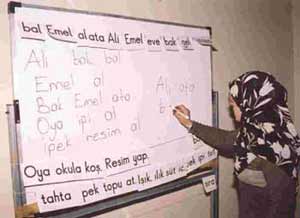 bal Emel al ata Ali Emel eve bak
Ali bak bal
Emel al
Bak Emel ata
Oya ipi al
ipek resim al
Ali ata
b
Oya okula koş. Resim yap.
tahta pek topu at. Işık ılık süt iç. ipi